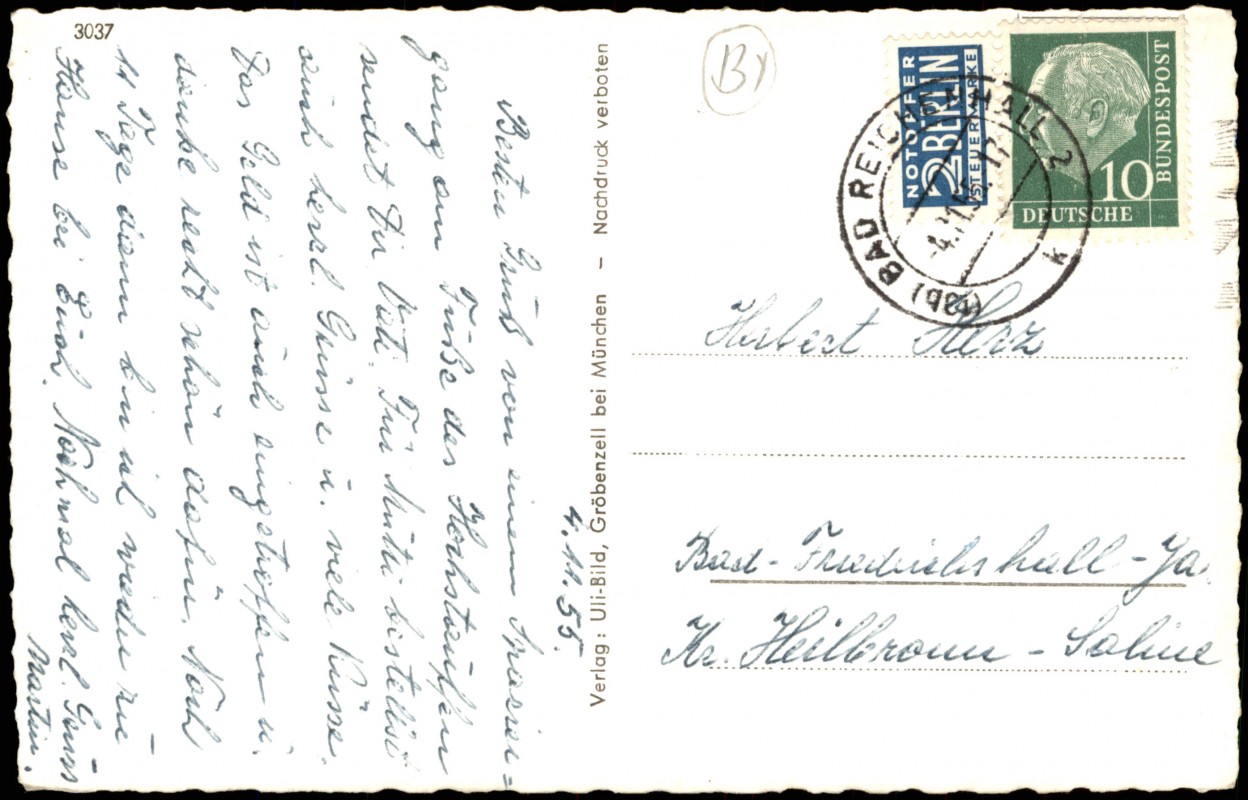 3037
4.11.55.
Besten Gruß von einem Spazier-
gang am Fuße des Hochstaufen
sendet Dir Vati. Für Mutti bestellst
auch herzl. Grüsse u. viele Küsse.
Das Geld ist auch eingetroffen u.
danke recht schön dafür. Noch
11 Tage dann bin ich wieder zu
Hause bei Euch. Nochmal herzl. Gruss
Martin.
Verlag: Uli-Bild, Gröbenzell bei München – Nachdruck verboten
NOTOPFER
2 BERLIN
STEUERMARKE
10
DEUTSCHE
BUNDESPOST
(13b) BAD REICHENHALL 2
k
Herbert Herz
Bad-Friedrichshall-Ja.
Kr. Heilbronn - Saline